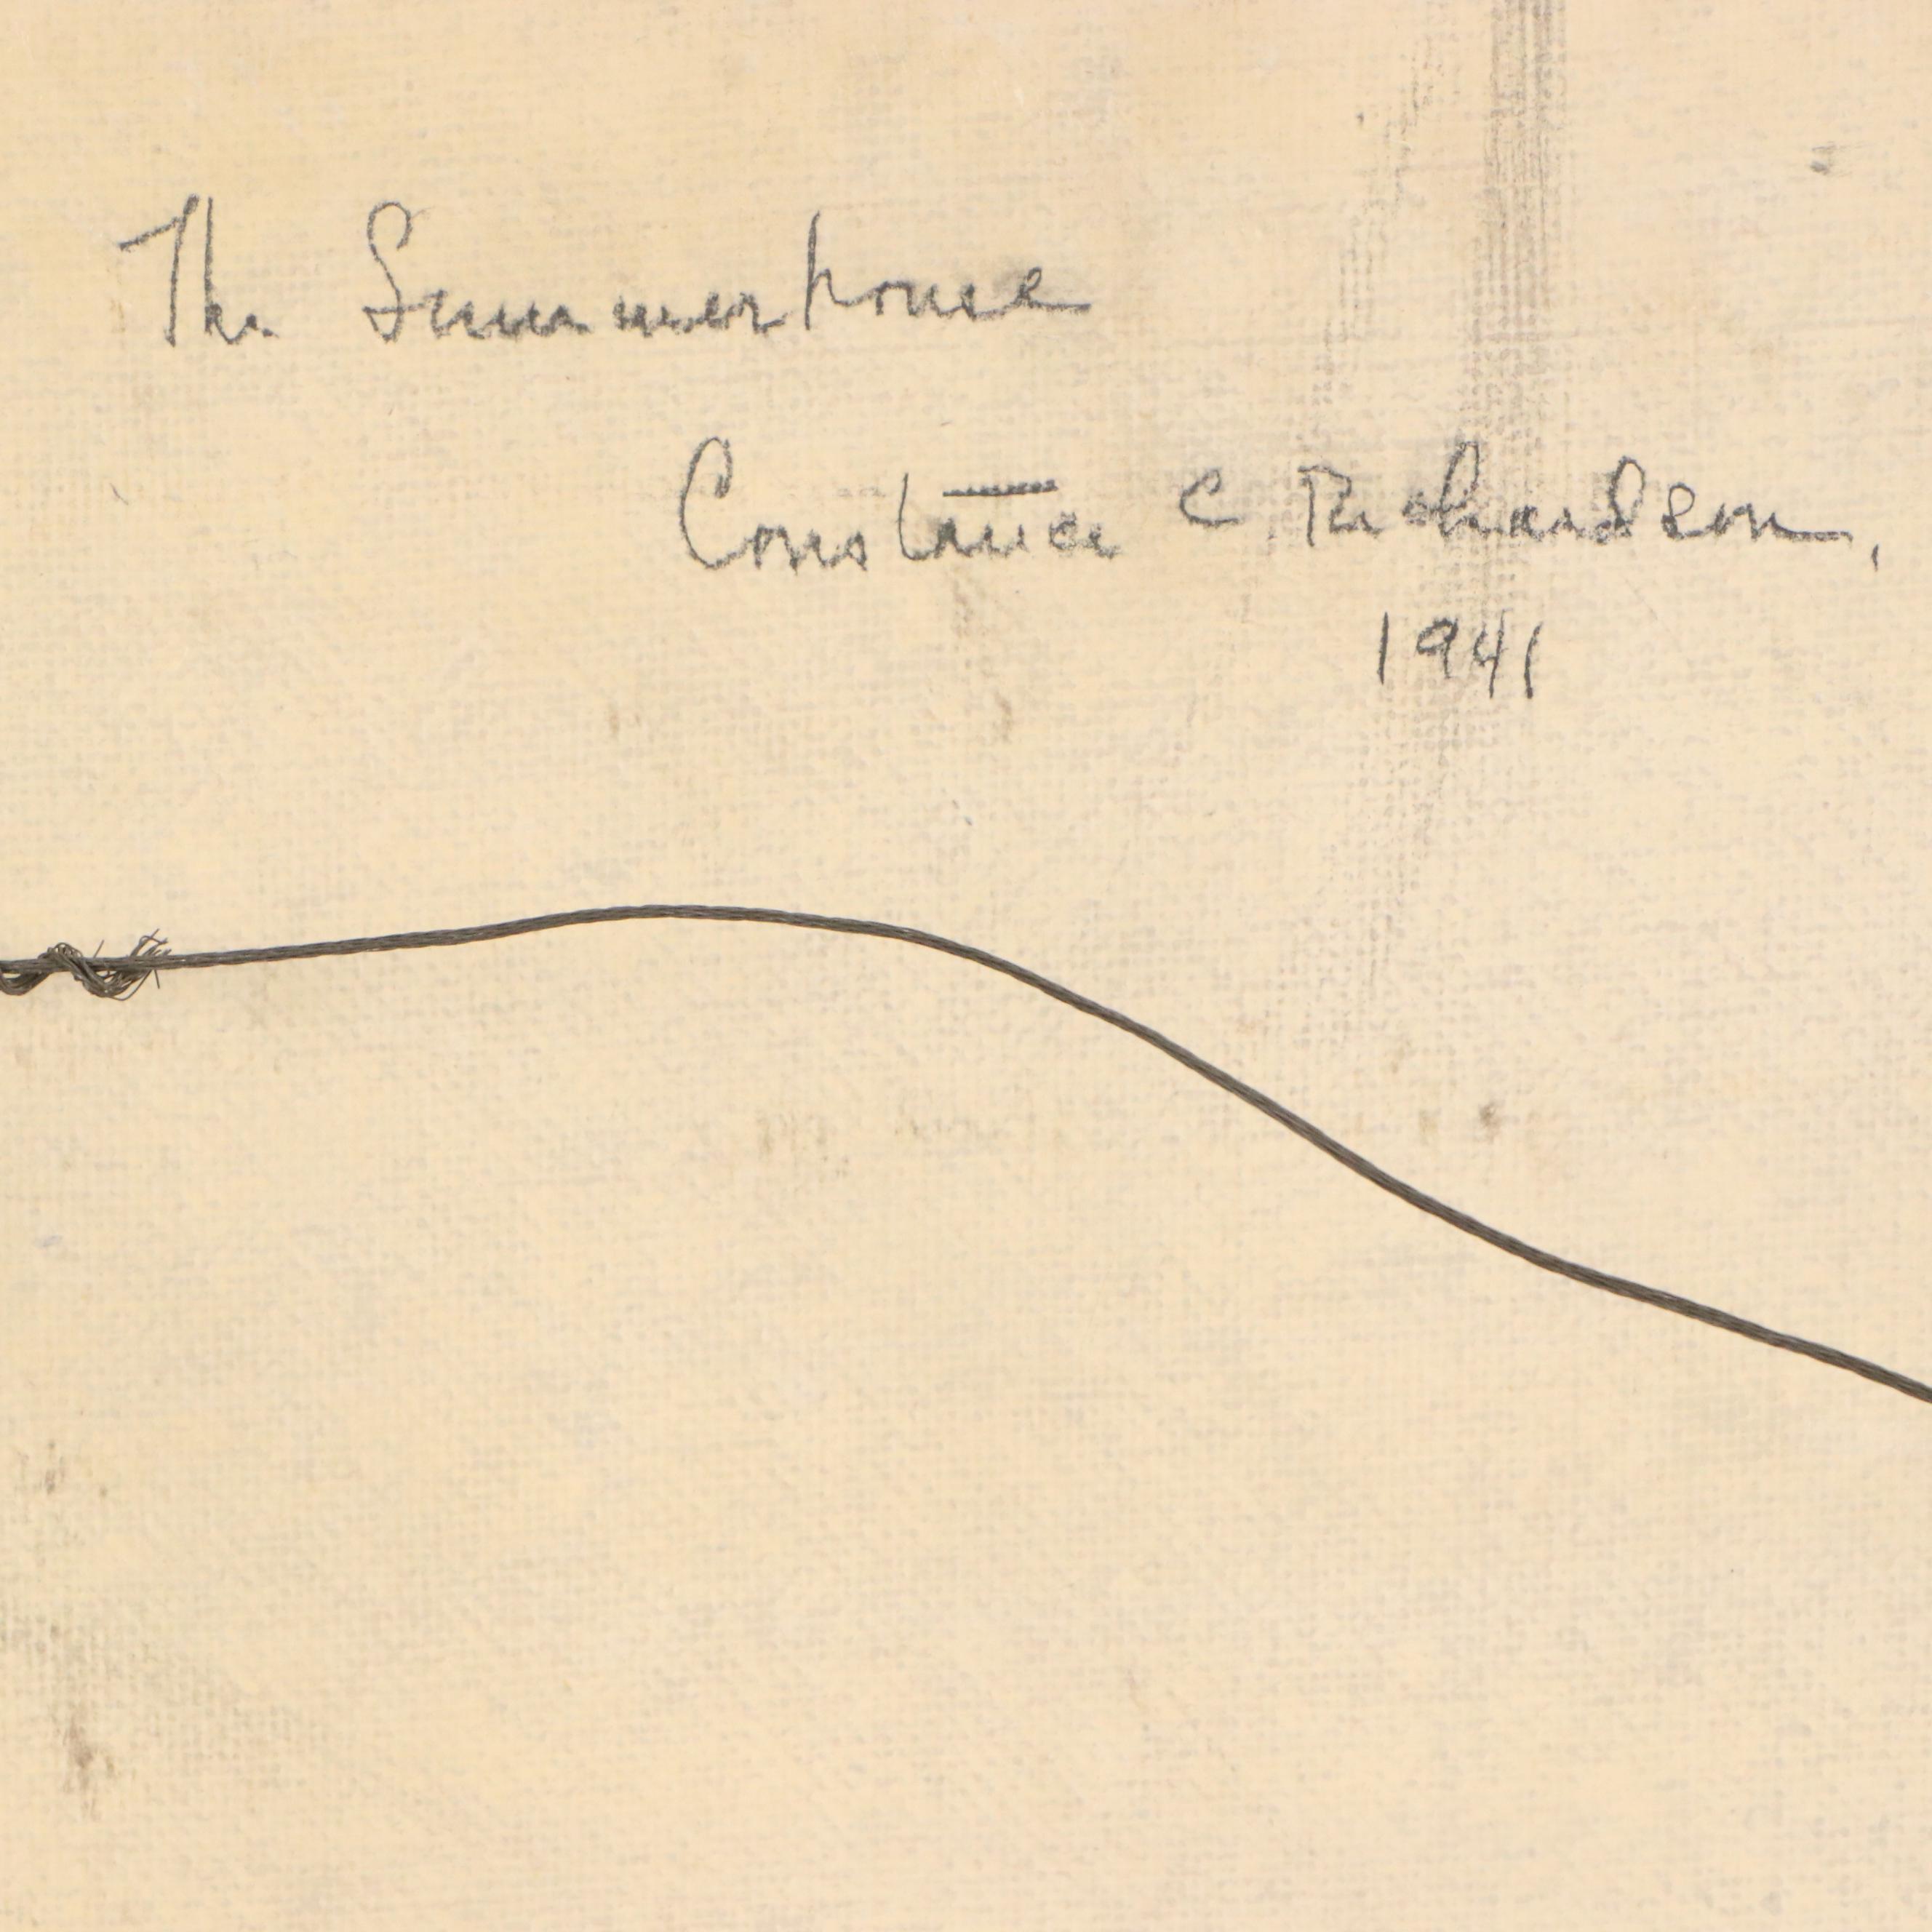 The Summerhouse
Constance C. Richardson,
1941